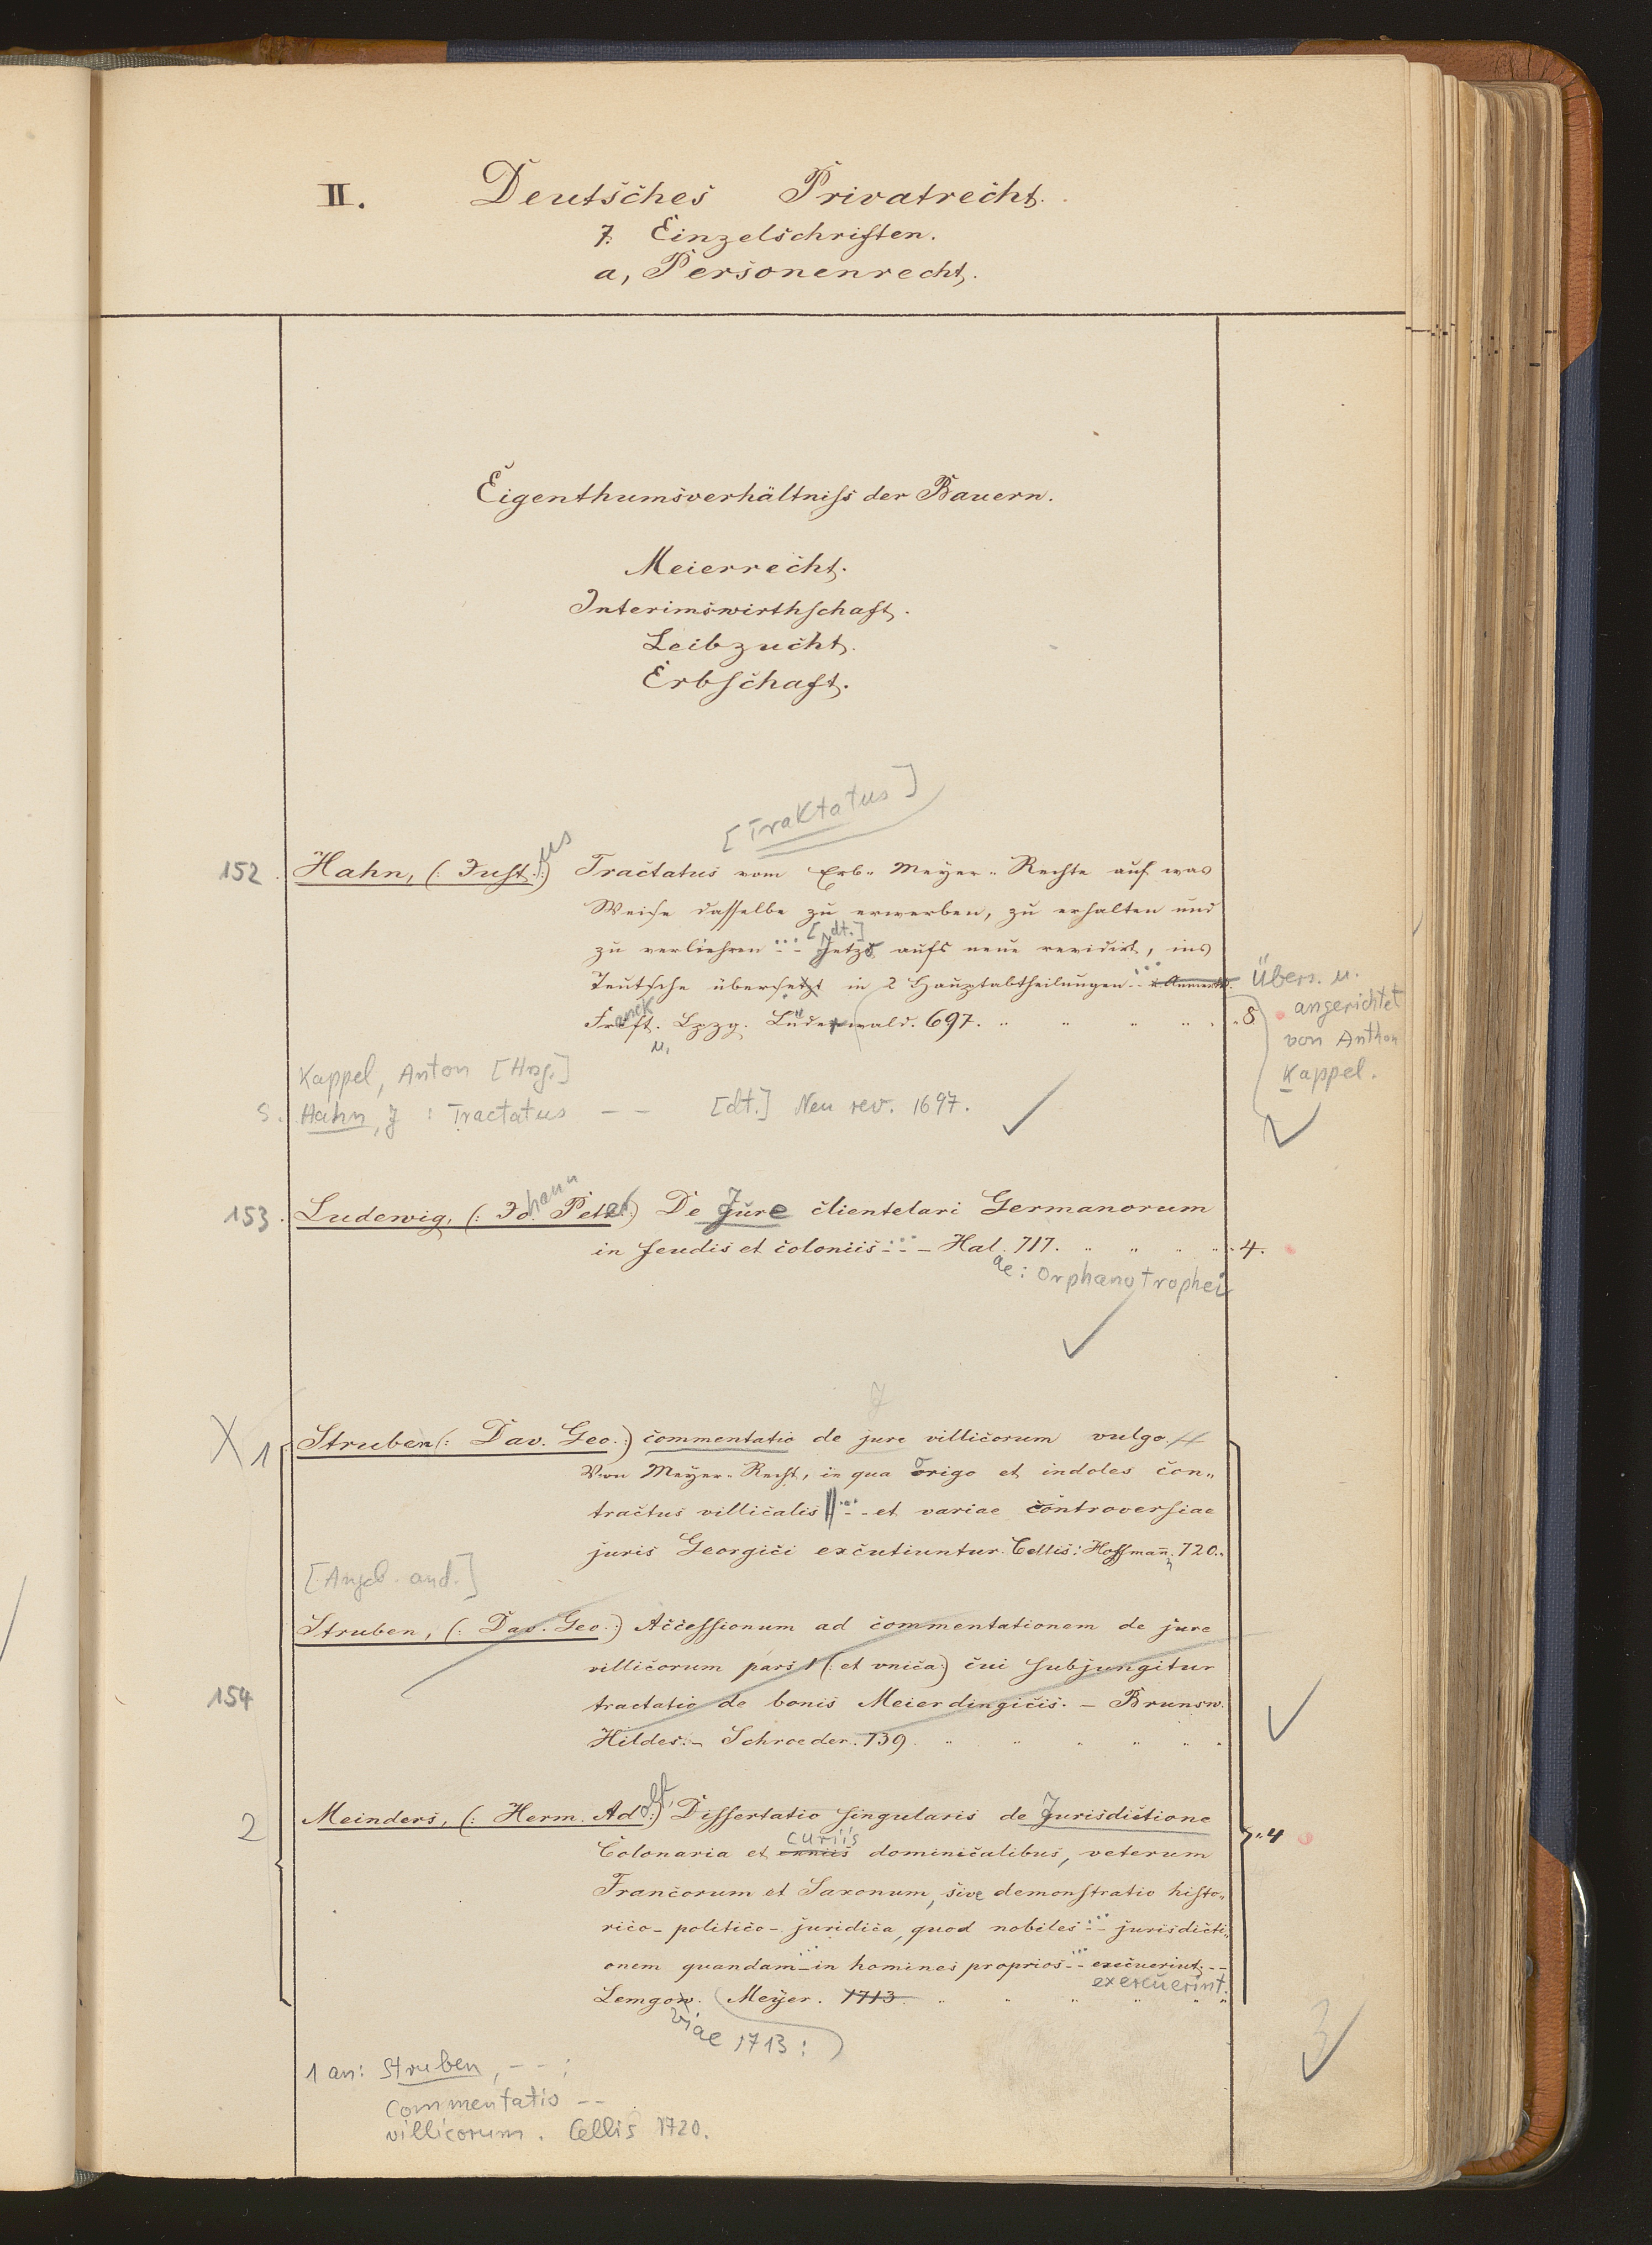 II. Deutsches Privatrecht.
7. Einzelschriften.
a, Personenrecht.
Eigenthumsverhältniss der Bauern.
Meierrecht.
Interimswirthschaft.
Leibzucht.
Erbschaft.
[Traktatus]
152. Hahn, (: Just.us :) Tractatus vom Erb- Meyer- Rechte auf was
Weise dasselbe zu erwerben, zu erhalten und
[dt.]
zu verliehren - - Jetzo aufs neue revidirt, ins
Teutsche übersetzt in 2 Hauptabtheilungen
Lpzg. Lüderwald. 697. " " " " "8
Übers. u.
angerichtet
von Anthon
Kappel.
Kappel, Anton [Hrsg.]
s. Hahn, J : Tractatus - - [dt.] Neu rev. 1697.
153. Ludewig, (: Johann Peter :) De Jure clientelari Germanorum
in feudis et coloniis - - - Hal. 717. " " " " 4.
ae: Orphanotrophei
J
X 1 Struben (: Dav. Geo. :) commentatio de jure villicorum vulgo
Von Meyer- Recht, in qua origo et indoles con-
tractus villicalis - - et variae controversiae
juris Georgici excutiuntur. Cellis: Hoffmann, 720.
[Angeb. and.]
Struben, (: Dav. Geo. :) Accessionum ad commentationem de jure
villicorum pars 1 (: et vnica :) cui subjungitur
154 tractatio de bonis Meierdingicis. - Brunsw.
Hildes. - Schroeder. 739. " " " " " "
2 Meinders, (: Herm. Adolf. :) Dissertatio singularis de Jurisdictione
curiis
Colonaria et dominicalibus, veterum "4
Francorum et Saxonum, sive demonstratio histo-
rico- politico- juridica, quod nobiles - - jurisdicti-
onem quandam - in homines proprios - - execuerint. - -
exercuerint.
Lemgow. Meyer. 1713. " " " " "
viae 1713 :
3
1 an: Struben, - - ;
Commentatio - -
villicorum. Cellis 1720.